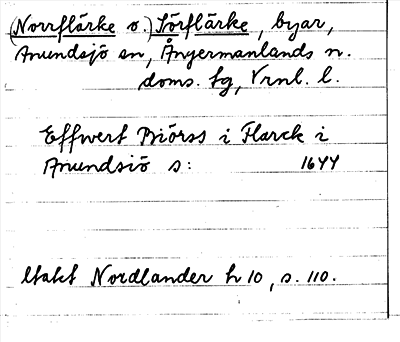 (Norrflärke o.) Sörflärke, byar,
Anundsjö sn, Ångermanlands n.
doms. sg, Vrnl. l.
Effwert Biörss i Flarck i
Anundsiö s: 1644
Utakt Nordlander h 10, s. 110.